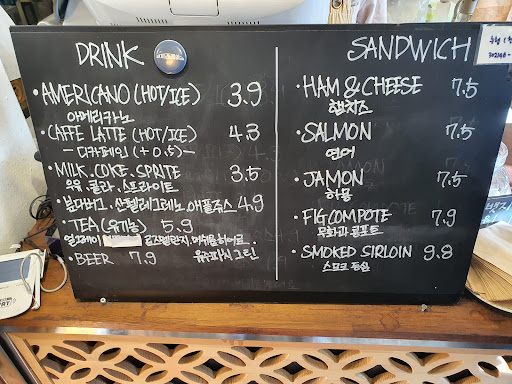 DRINK
• AMERICANO (HOT/ICE) 3.9
아메리카노
• CAFFE LATTE (HOT/ICE) 4.3
- 디카페인 (+0.5) -
• MILK. COKE. SPRITE 3.5
우유. 콜라. 스프라이트
애플주스 4.9
• TEA (유기농) 5.9
얼그레이
• BEER 7.9
SANDWICH
• HAM & CHEESE 7.5
햄치즈
• SALMON 7.5
연어
• JAMON 7.5
하몽
• FIG COMPOTE 7.9
무화과 콤포트
• SMOKED SIRLOIN 9.8
스모크 등심